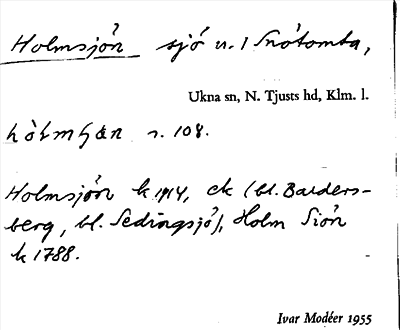 Holmsjön sjö n. 1 Snötomta,
Ukna sn, N. Tjusts hd, Klm. l.
s. 108.
Holmsjön k 1914, ek (bl. Balders-
berg, bl. Sedingsjö), Holm Siön
k 1788.
Ivar Modéer 1955